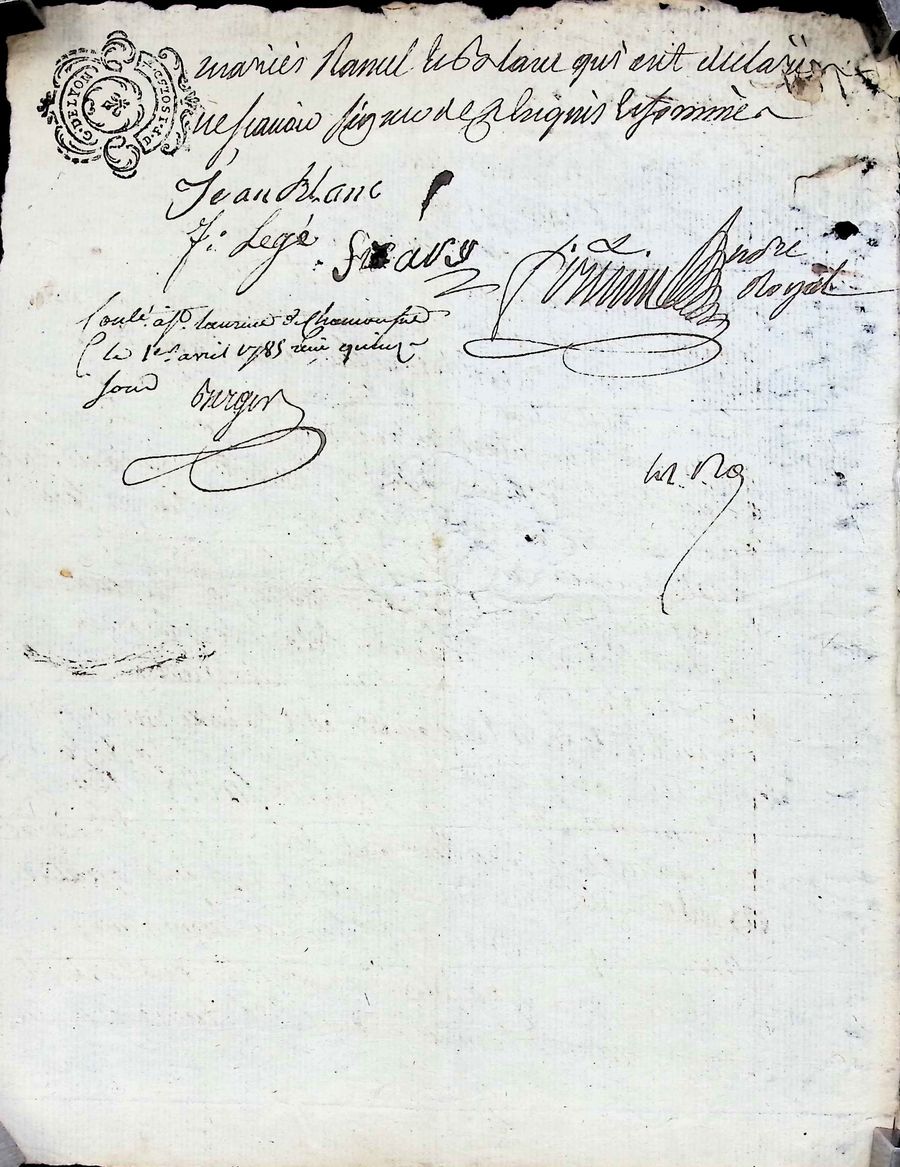 G. DE LYON
mariés Ramel et Blanc qui ont declaré
ne scavoir signer de ce enquis et sommés
Jean Blanc
F. Legé
ficavy
notre
Royal
Conlé à St. Laurent de Chamousset
le 1er avril 1785 reçu quinze
sous
Berger